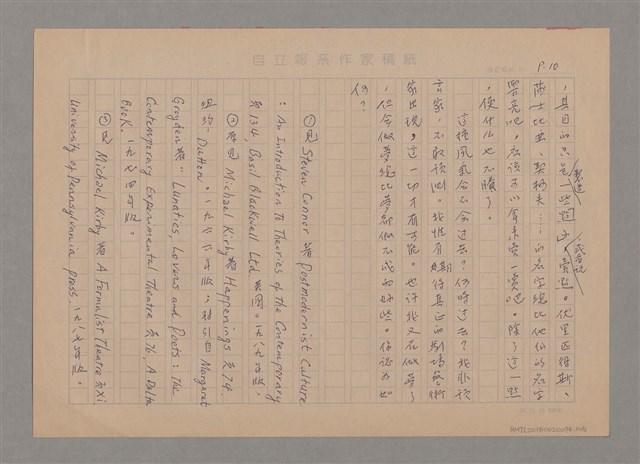 自立報系作家稿紙
P.10
，其目的只是製造一些趙子、賣點。優里匹得斯、
莎士比亞、契訶夫……的名字總比他們的名字
響亮吧，應該可以拿來賣一賣吧。除了這一些
，便什么也不賸了。
這種風氣會不會過去？何時過去？我非預
言家，不敢預測。我惟有期待真正的劇場藝術
家出現，這一切才有可能。也許我又在做夢了
，但會做夢總比夢都做不成的好些。你認為如
何？
①見 Steven Connor 著 Postmodernist Culture
: An Introduction to Theories of the Contemporary
頁134, Basil Blackwell Ltd 英國。一九八九年版。
②原見 Michael Kirby 著 Happenings 頁74.
紐約：Dutton。一九六六年版；轉引自 Margaret
Croyden 著：Lunatics, Lovers and Poets: The
Contemporary Experimental Theatre 頁76, A Delta
Book. 一九七四年版。
③見 Michael Kirby 著 A Formalist Theatre 頁xi
University of Pennsylvania press, 一九八七年版。